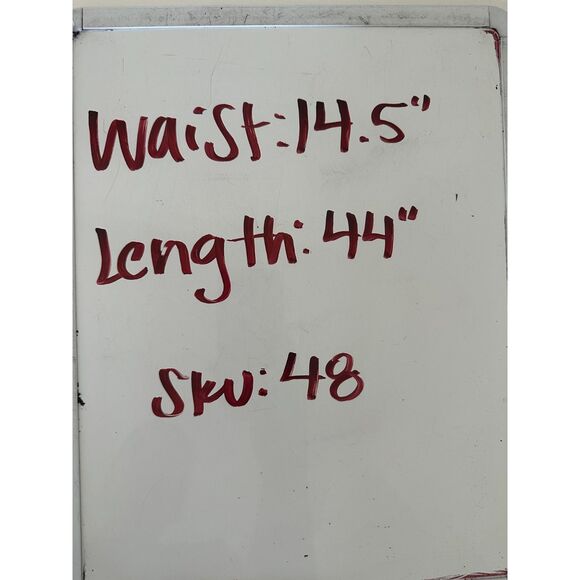 Waist: 14.5"
Length: 44"
Sku: 48